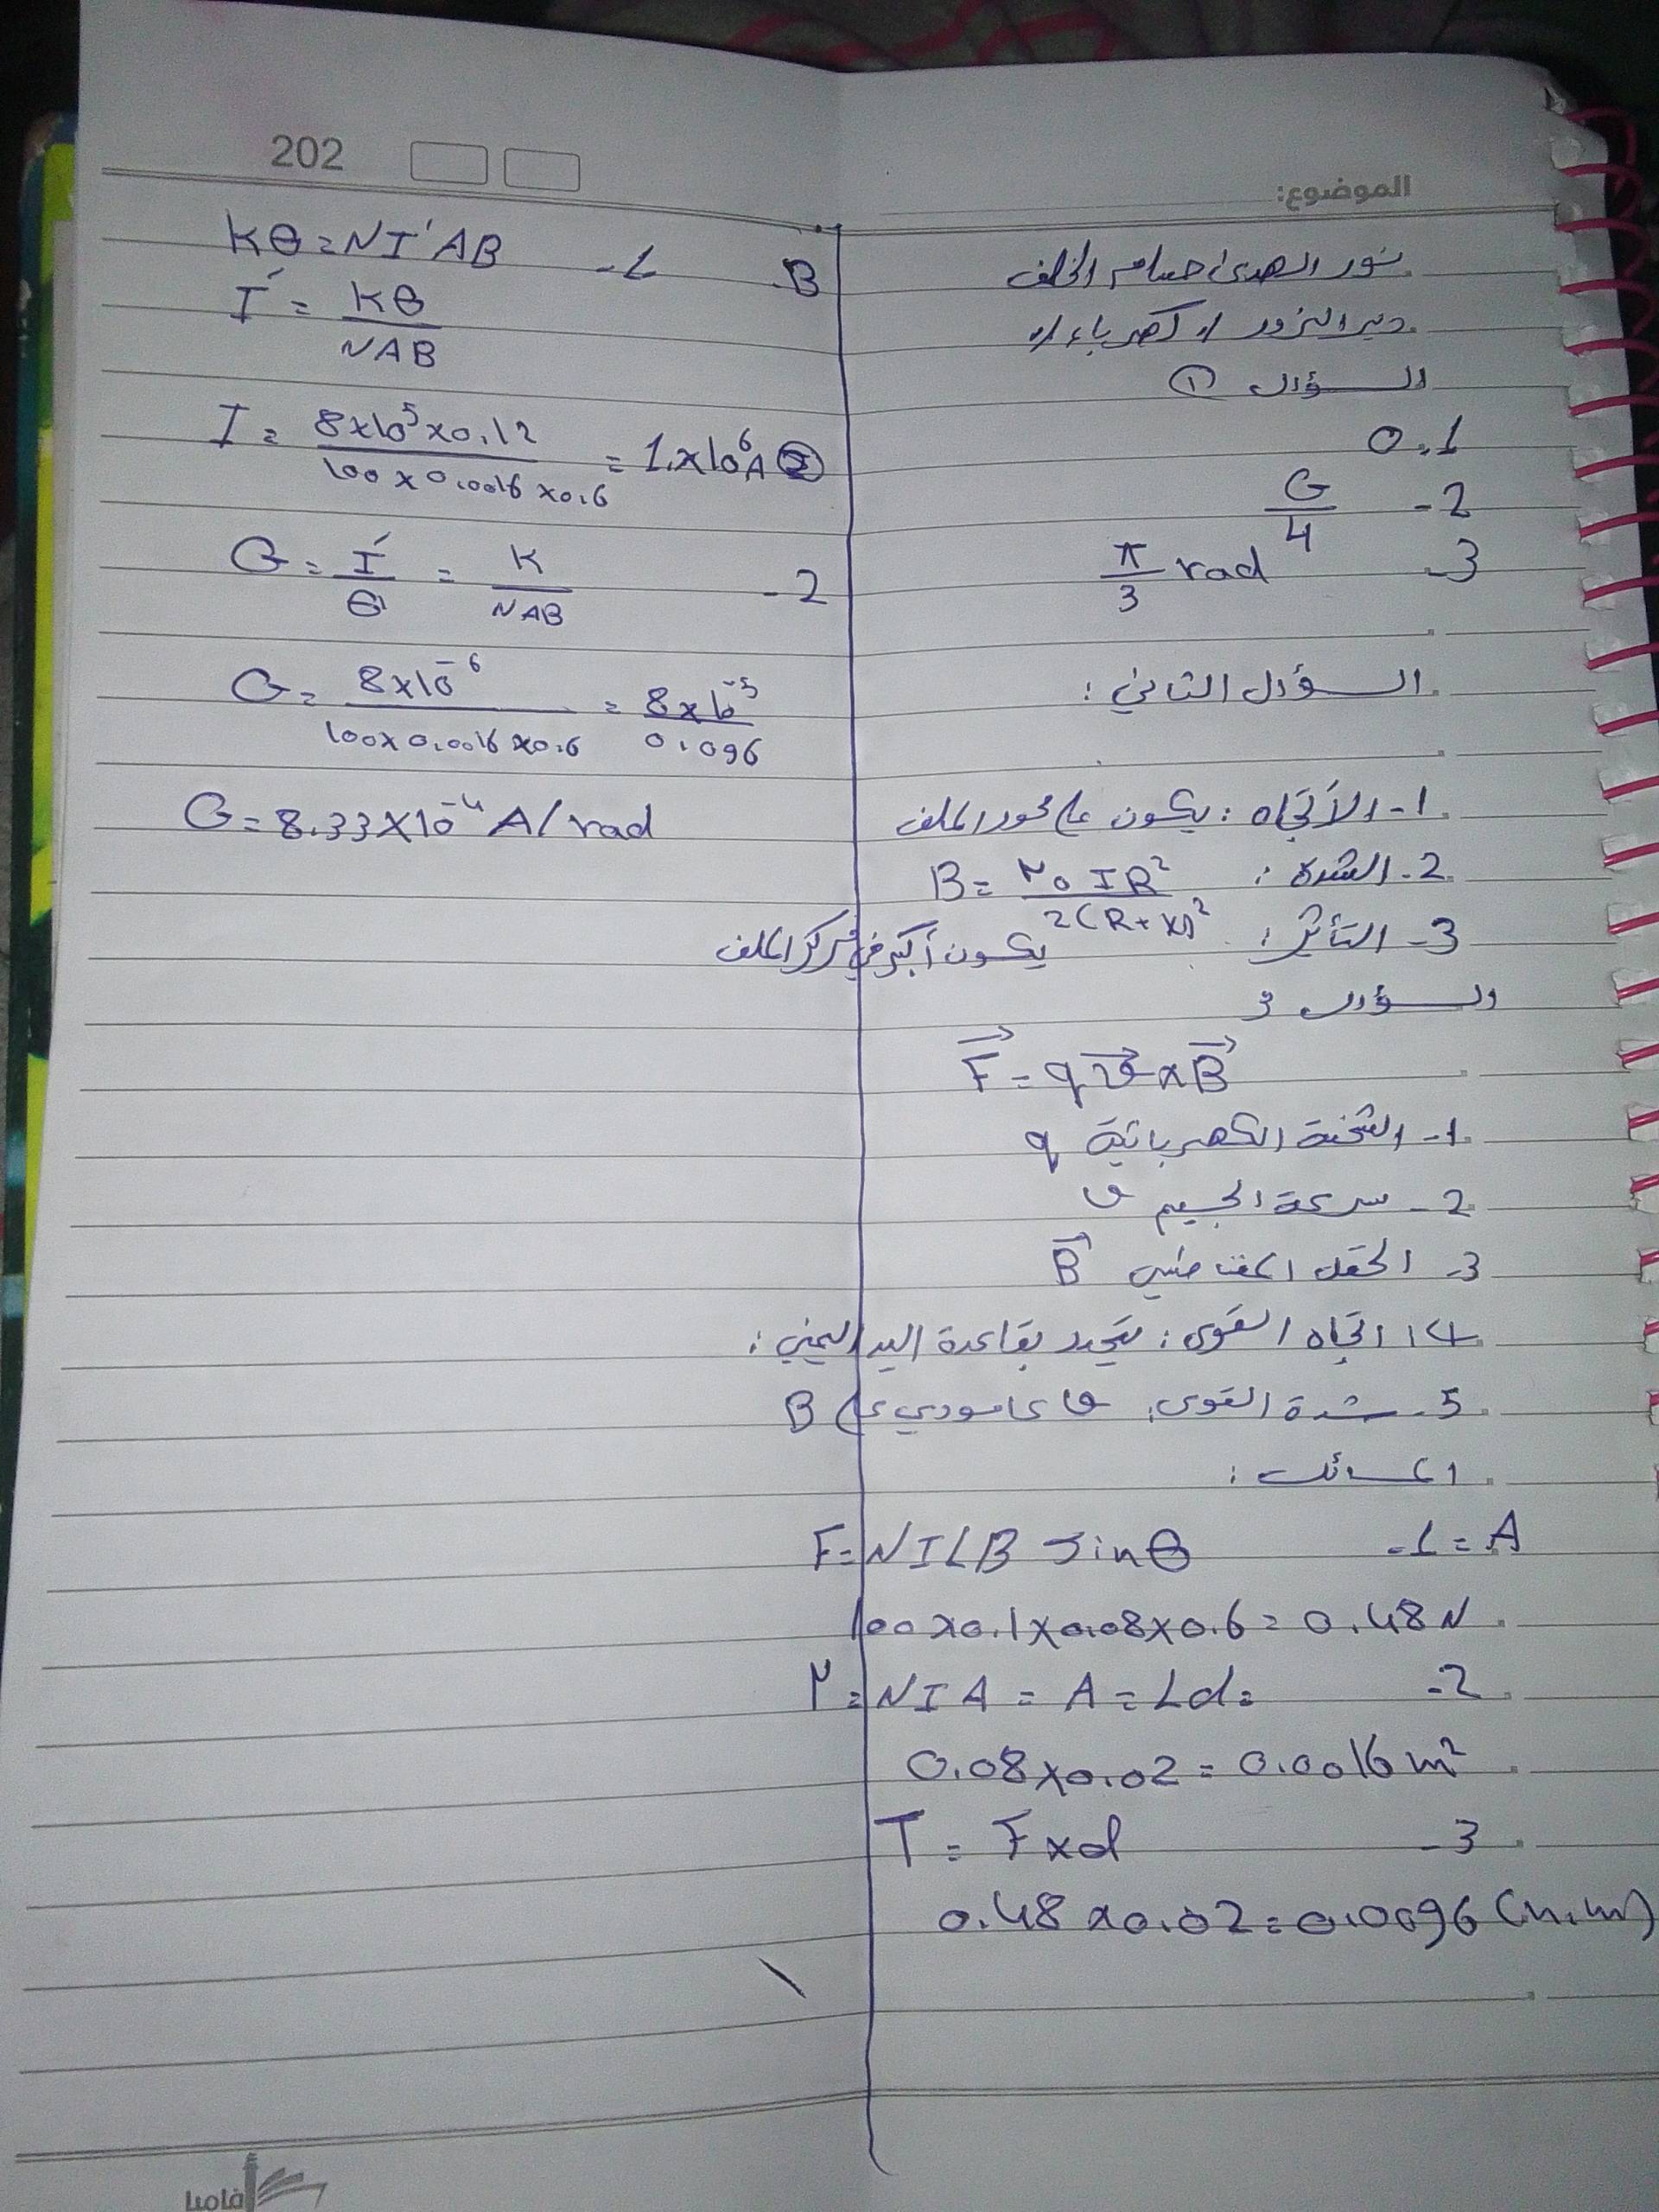 202
الموضوع:
نور الهدى حسام الخلف
دير الزور / كهرباء /
السؤال ①
0.1
2- G/4
3- π/3 rad
السؤال الثاني :
1- الأتجاه : يكون على محور الملف
2- الشدة : B = μ0 I R² / 2(R+x)²
3- التأثير : يكون أكبر في مركز الملف
السؤال 3
F = qv x B
1- الشحنة الكهربائية q
2- سرعة الجسيم v
3- الحقل المغناطيسي B
4- اتجاه القوى : يتحدد بقاعدة اليد اليمنى :
5- شدة القوى : v عامودي على B
المسائل :
1- = A F = NILB sin θ
100 x 0.1 x 0.08 x 0.6 = 0.48 N
2- μ = NIA = A = Ld =
0.08 x 0.02 = 0.0016 m²
3- T = F x d
0.48 x 0.02 = 0.0096 (n.m)
B 1- kθ = NI'AB
I' = kθ / NAB
I = 8x10⁵ x 0.12 / 100 x 0.0016 x 0.6 = 1.x10⁶ A
2- G = I' / θ' = K / NAB
G = 8x10⁻⁶ / 100 x 0.0016 x 0.6 = 8x10⁻⁵ / 0.096
G = 8.33 x 10⁻⁴ A/rad